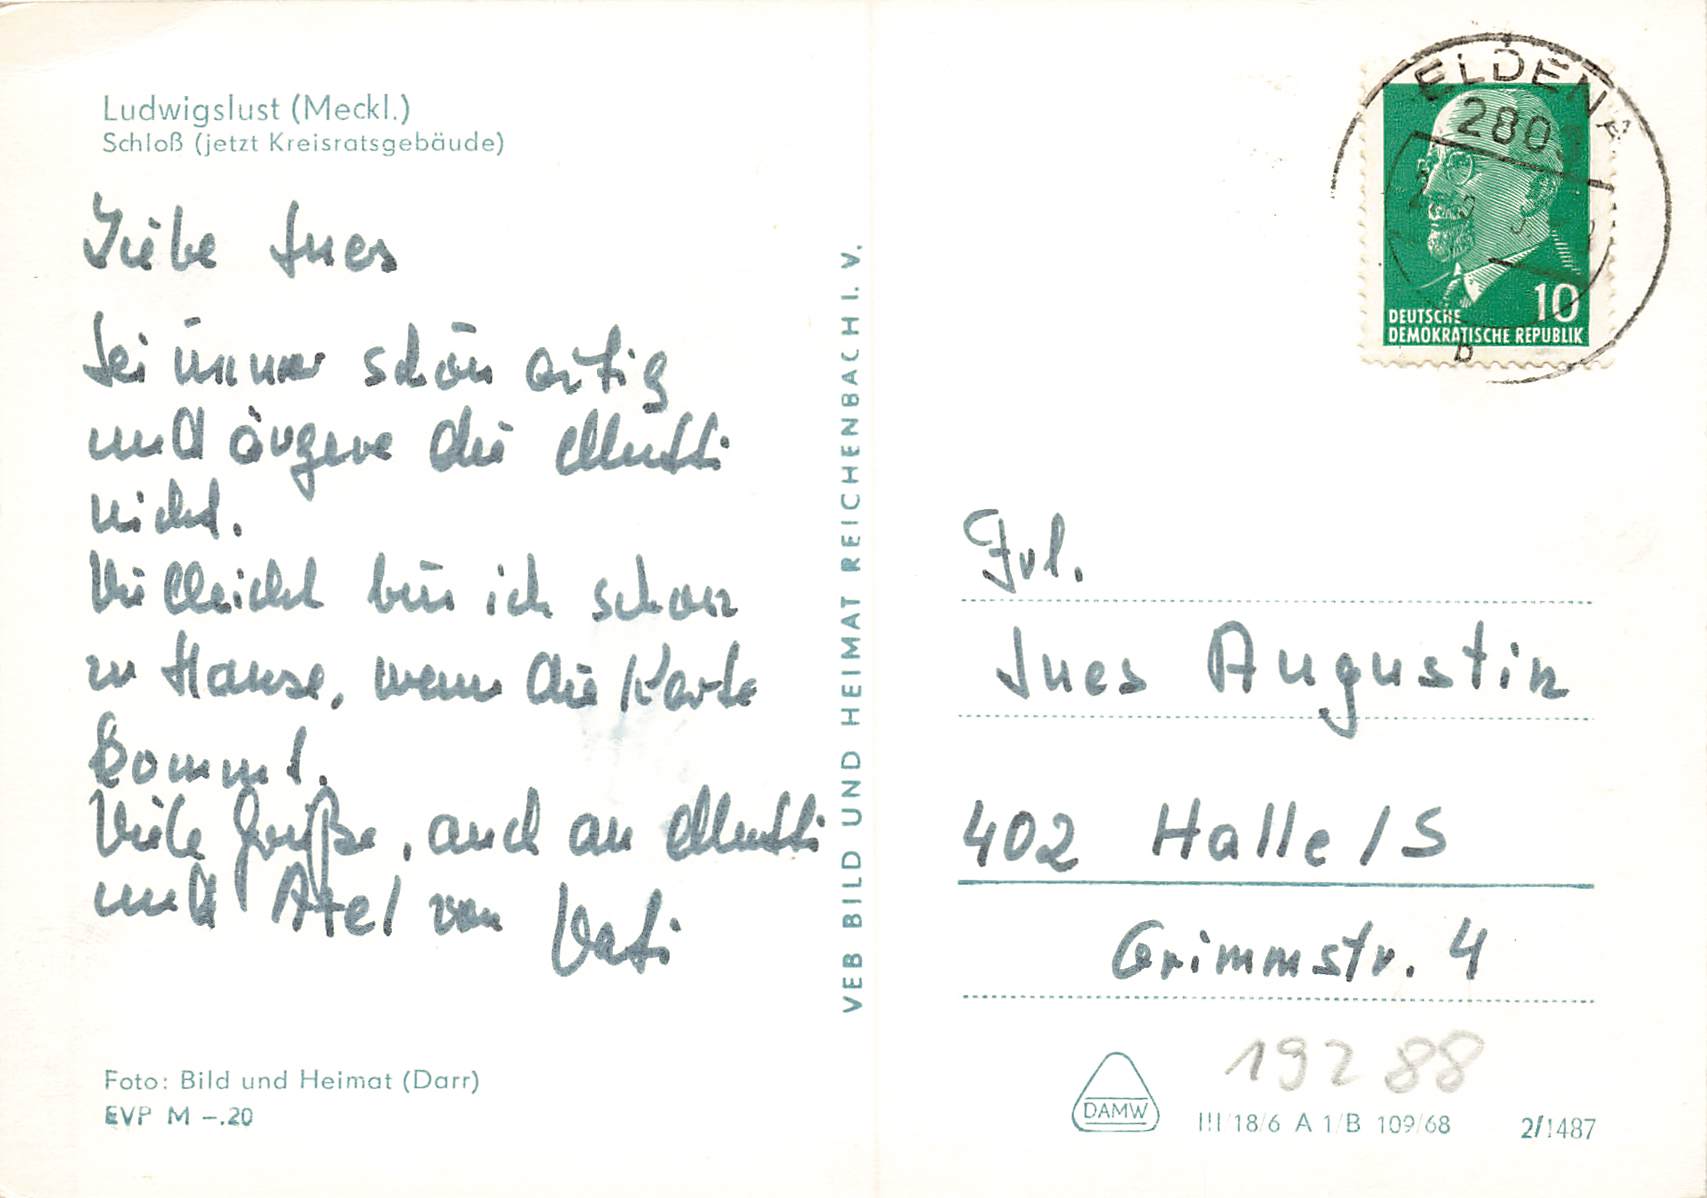 Ludwigslust (Meckl.)
Schloß (jetzt Kreisratsgebäude)
Liebe Ines
Sei immer schön artig
und ärgere die Mutti
nicht.
Vielleicht bin ich schon
zu Hause, wenn die Karte
kommt.
Viele Grüße, auch an Mutti
und Axel von Vati
Foto: Bild und Heimat (Darr)
EVP M –.20
VEB BILD UND HEIMAT REICHENBACH I. V.
ELDENA
2805
b
10
DEUTSCHE
DEMOKRATISCHE REPUBLIK
Frl.
Ines Augustin
402 Halle/S
Grimmstr. 4
19288
DAMW
III/18/6 A 1/B 109/68 2/1487